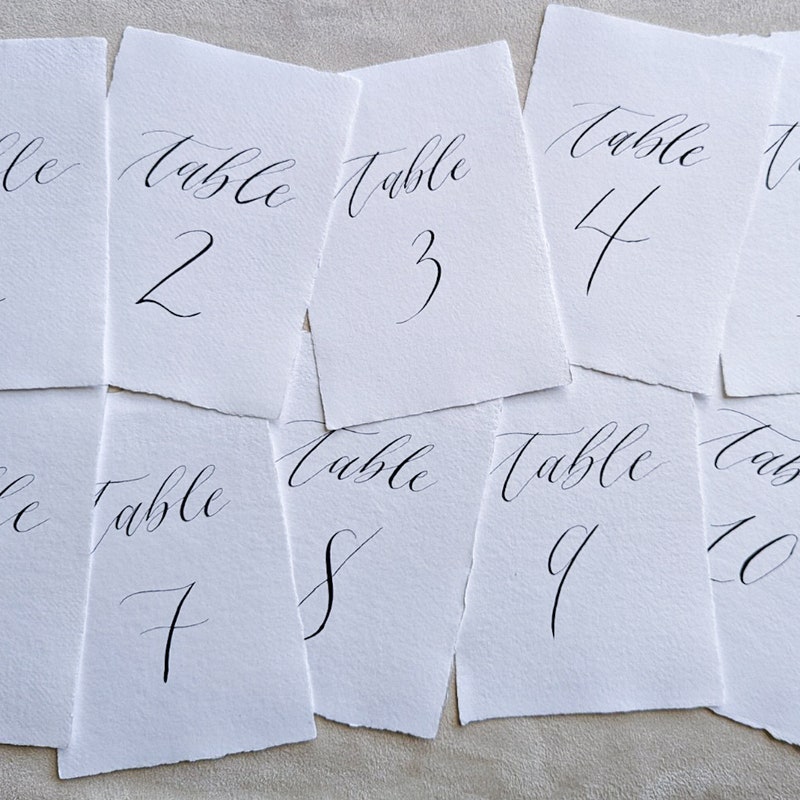 Table
2
Table
3
Table
4
Table
7
Table
8
Table
9
Tab
10